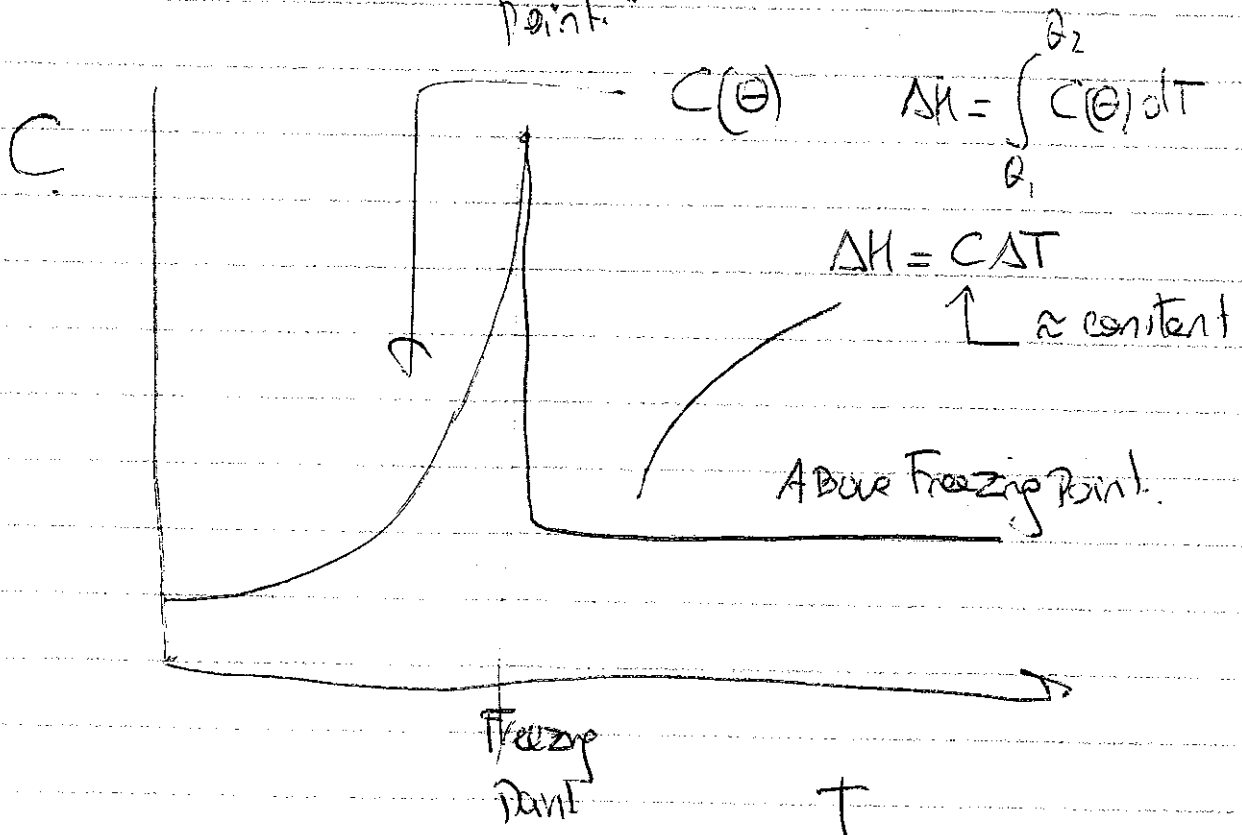 Point."
C(θ) ΔH = ∫ C(θ) dT
θ2
θ1
C
ΔH = CΔT
≈ constant
Above Freezing Point.
Freezing
Point
T